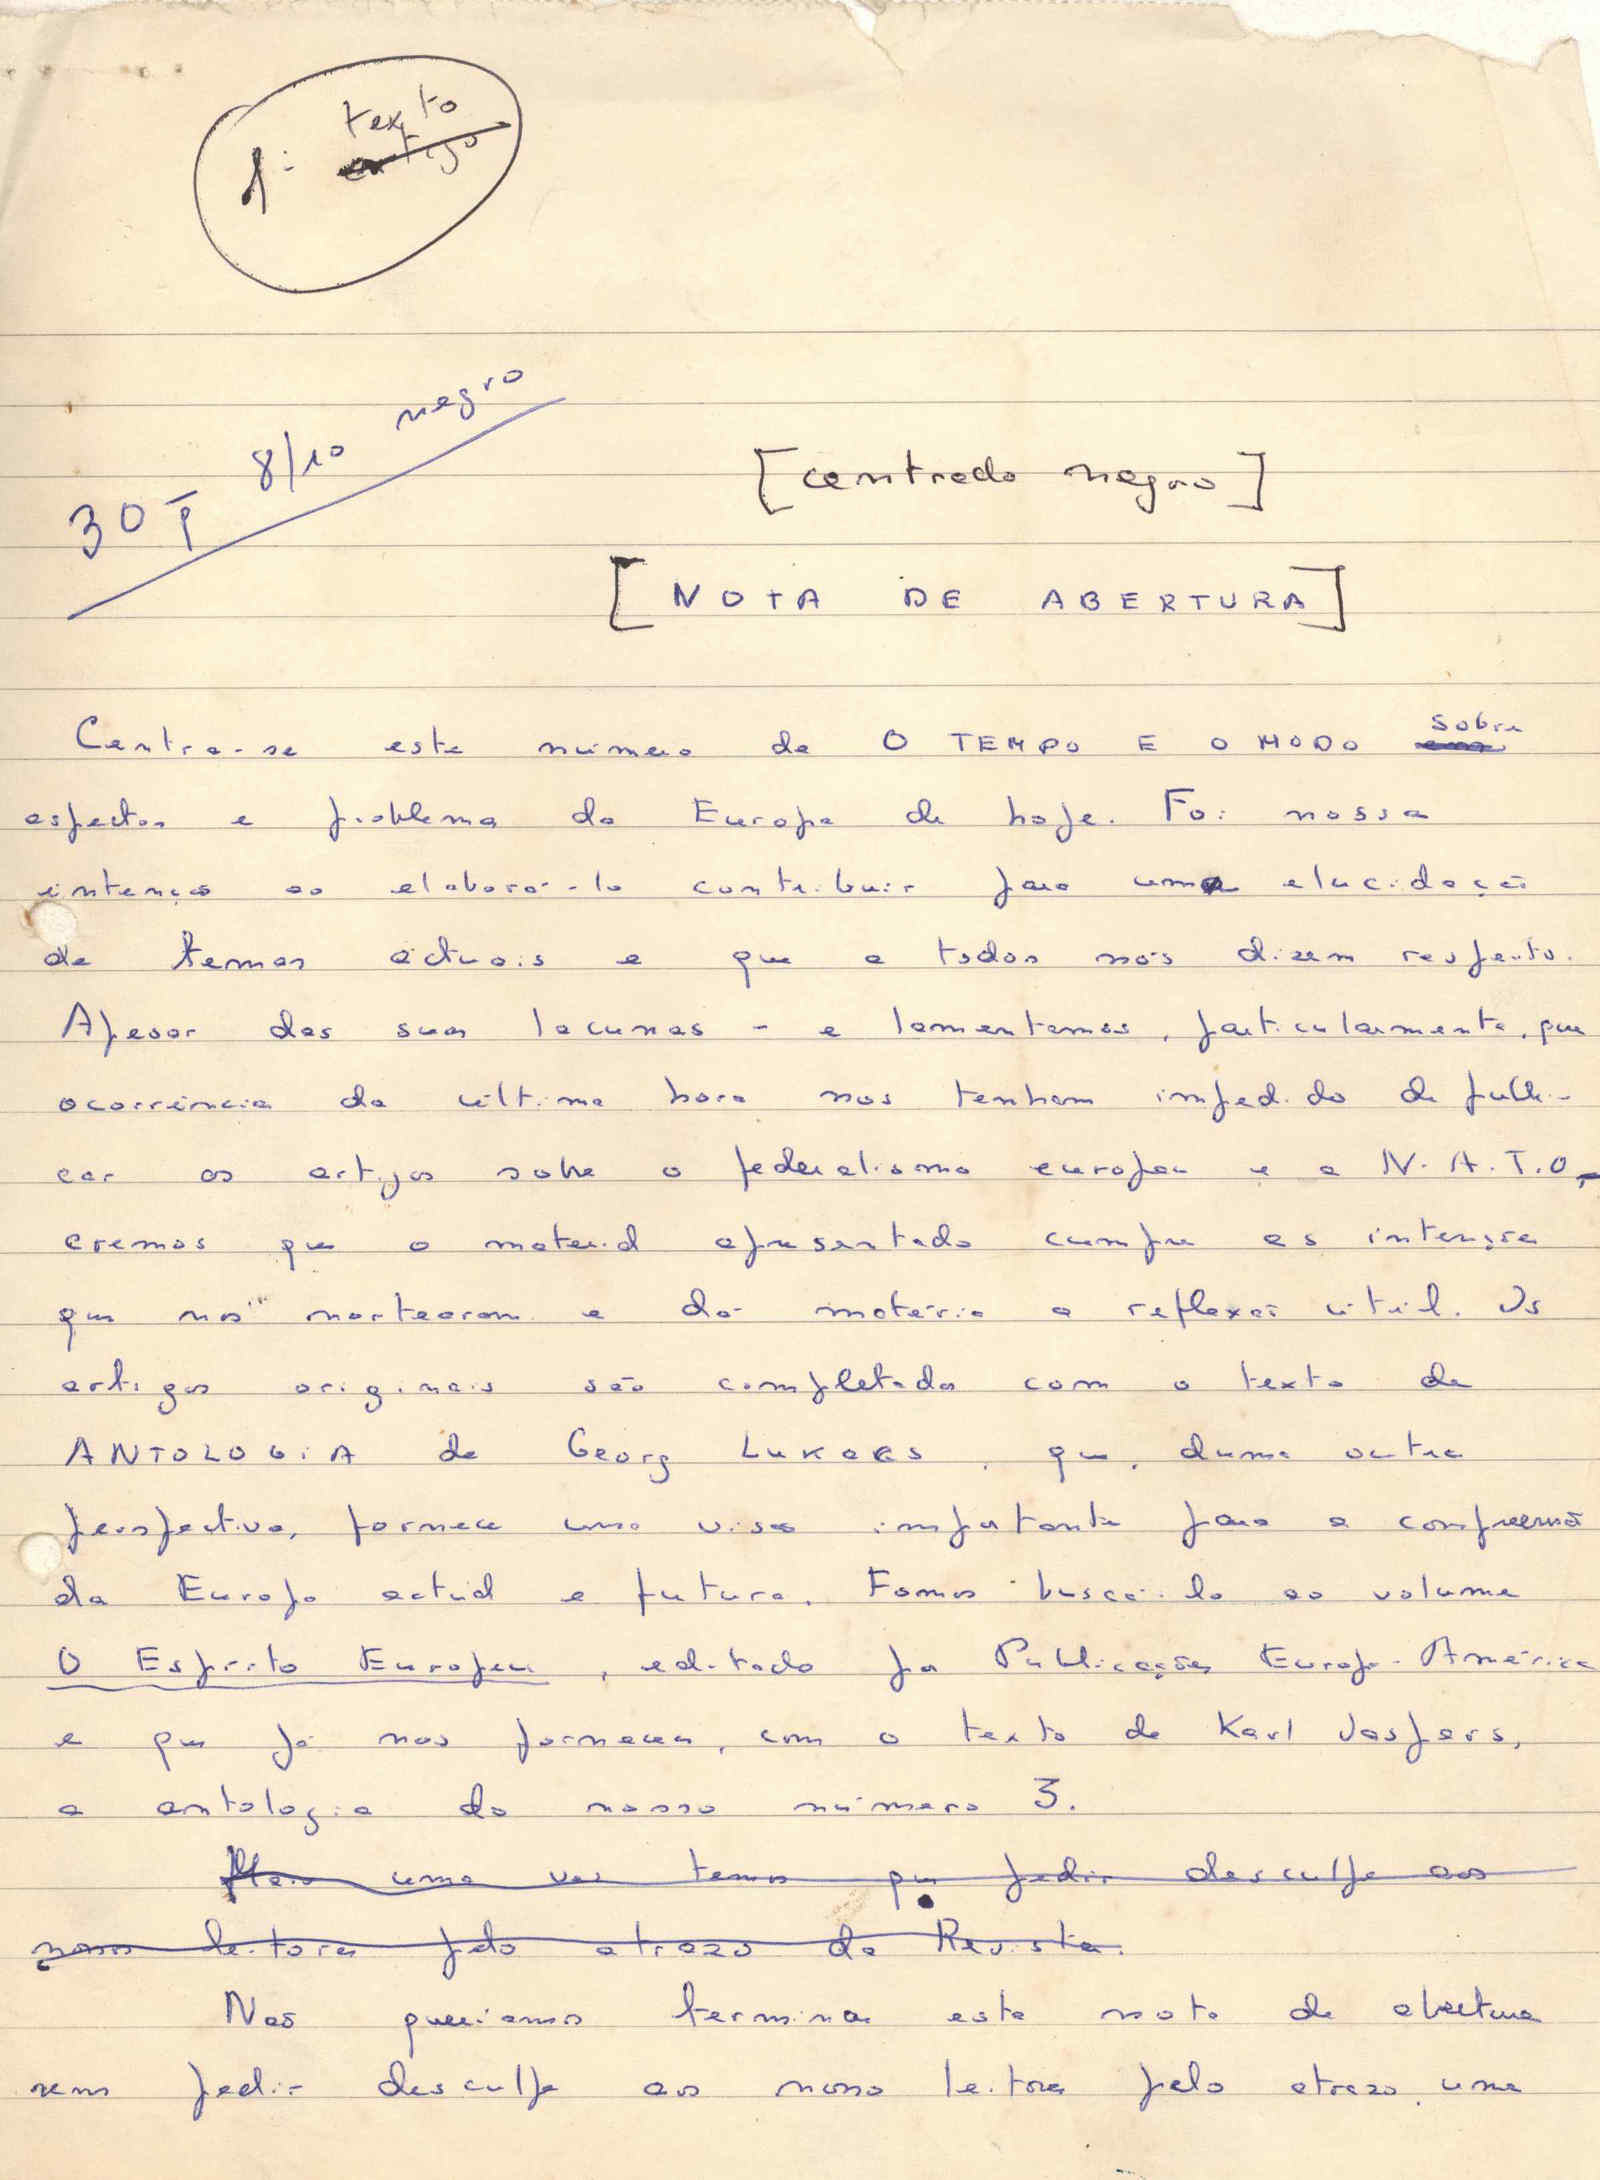 1º texto
artigo
30 P 8/10 negro
[centrado negro]
[NOTA DE ABERTURA]
Centra-se este número de O TEMPO E O MODO sobre
aspectos e problemas da Europa de hoje. Foi nossa
intenção ao elaborá-lo contribuir para uma elucidação
de temas actuais e que a todos nós dizem respeito.
Apesar das suas lacunas - e lamentamos, particularmente, que
ocorrências da última hora nos tenham impedido de publi-
car os artigos sobre o federalismo europeu e a N.A.T.O. -
cremos que o material apresentado cumpre as intenções
que nos nortearam e dá matéria a reflexão útil. Os
artigos originais são completados com o texto da
ANTOLOGIA de Georg LUKACS, que, duma outra
perspectiva, fornece uma visão importante para a compreensão
da Europa actual e futura. Fomos buscá-lo ao volume
O Espírito Europeu, editado por Publicações Europa-América
e que já nos forneceu, com o texto de Karl Jaspers,
a antologia do nosso número 3.
Mais uma vez temos que pedir desculpa aos
nossos leitores pelo atrazo da Revista.
Não queriamos terminar esta nota de abertura
sem pedir desculpa aos nossos leitores pelo atrazo, uma